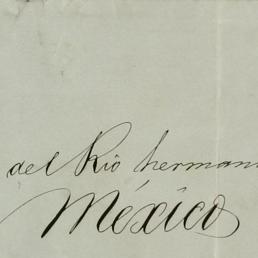 del Rio herman
México